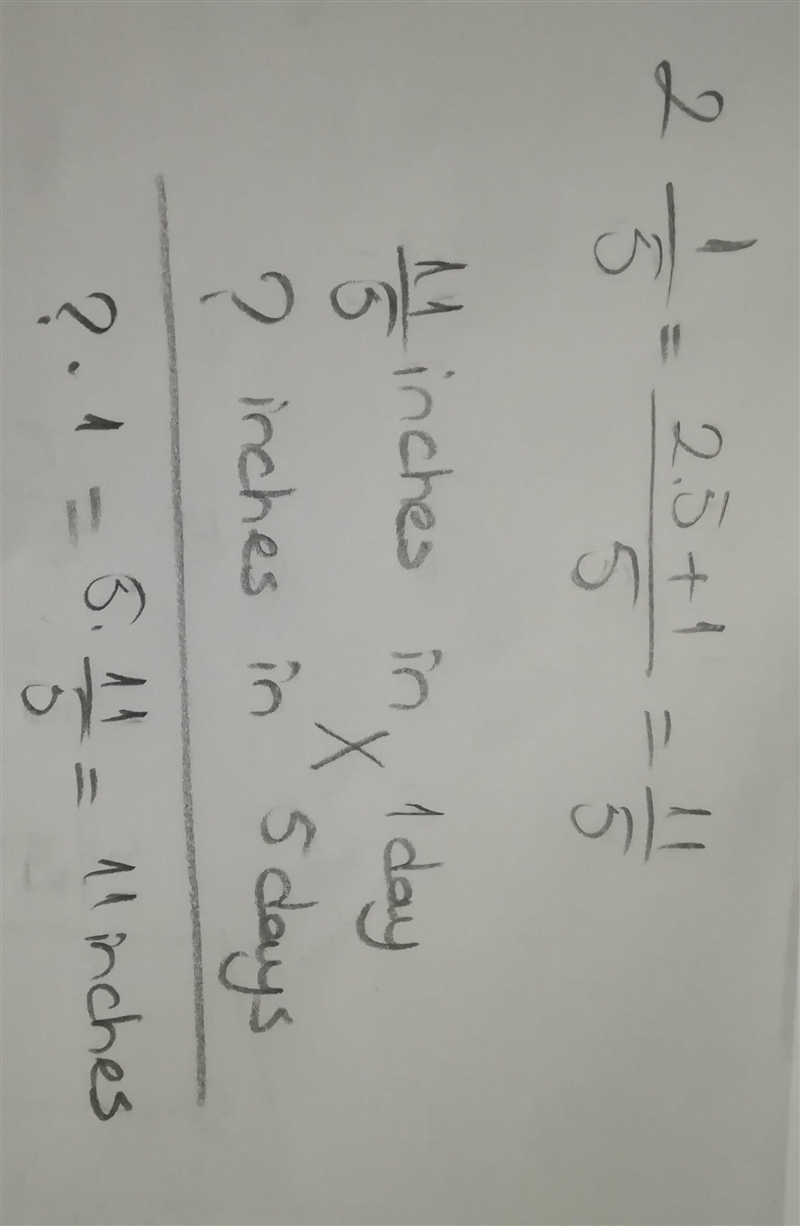 2 1/5 = 2.5+1/5 = 11/5
11/5 inches in 1 day
X
? inches in 5 days
? . 1 = 5. 11/5 = 11 inches